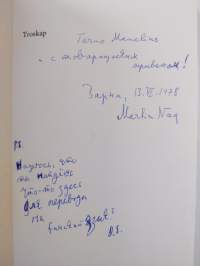 Troskap
Теrмо Маnеlius
- с товарищеским
приветом!
Варна, 13.VI.1978
Martin Nag
P.S.
Надеюсь, что
ты найдешь
что-то здесь
для перевода
на
финский язык!